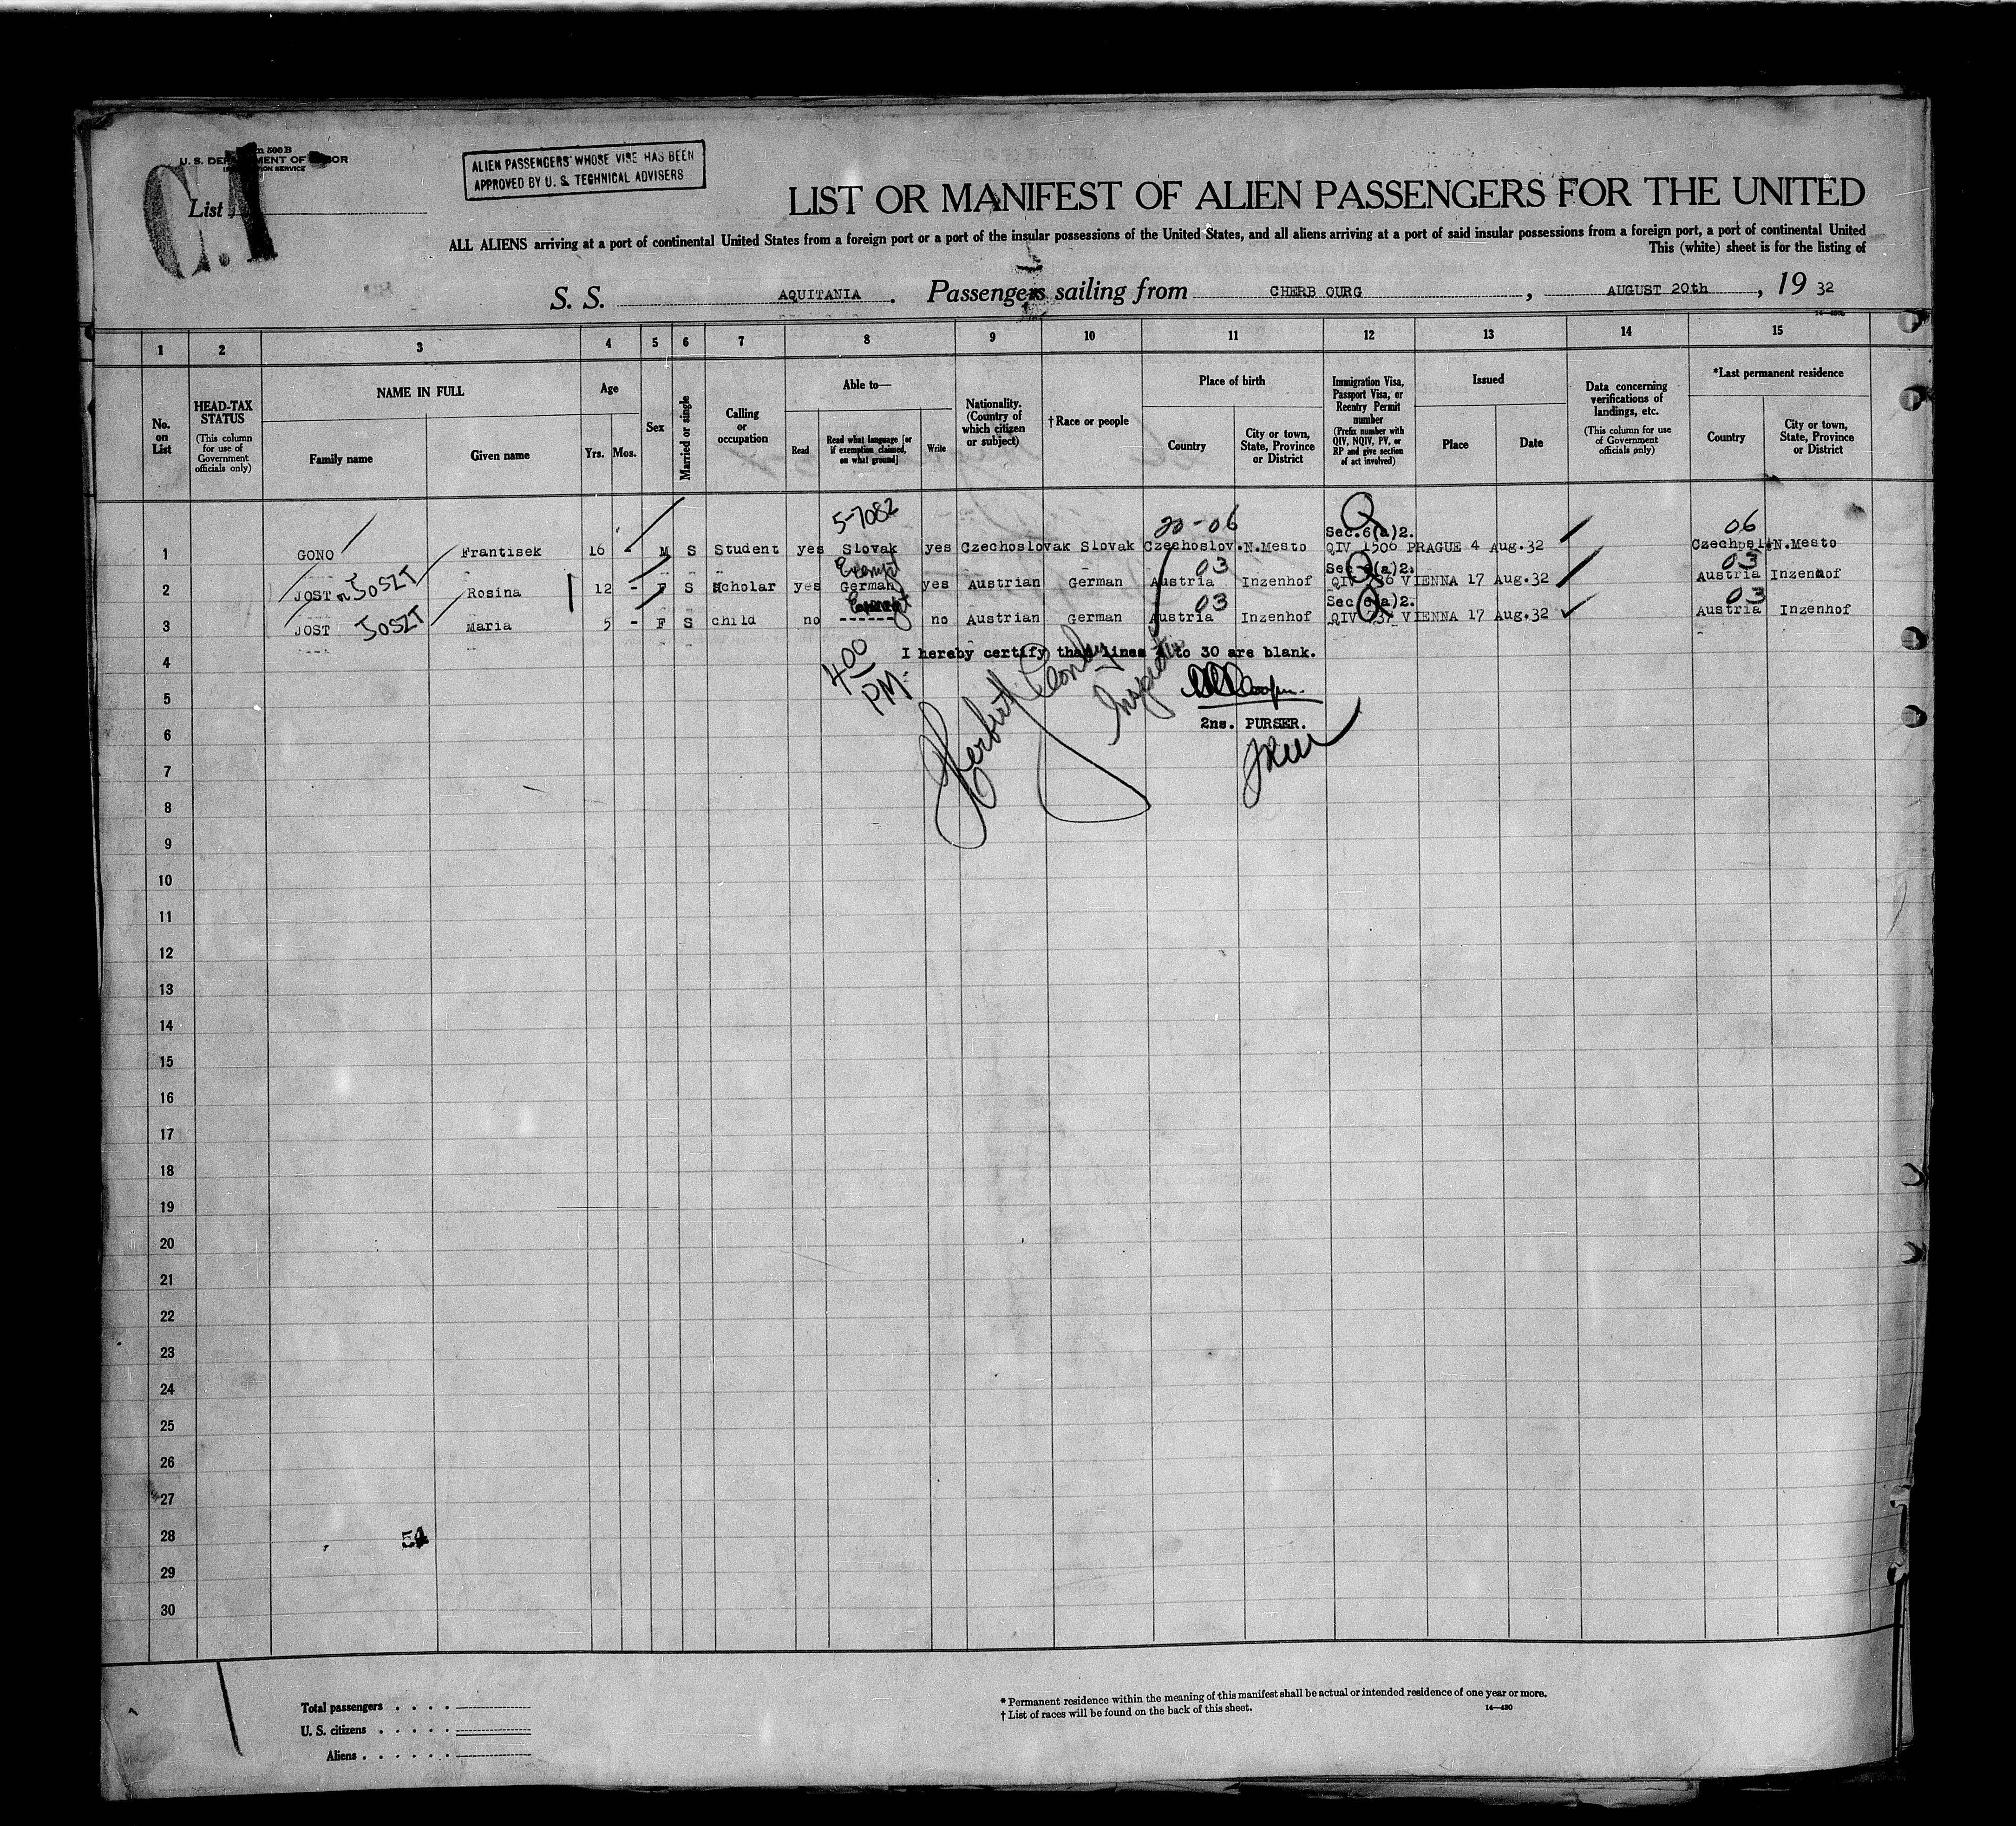 U. S. DEPARTMENT OF LABOR
C.I
List
ALIEN PASSENGERS WHOSE VISE HAS BEEN
APPROVED BY U. S. TECHNICAL ADVISERS
LIST OR MANIFEST OF ALIEN PASSENGERS FOR THE UNITED
ALL ALIENS arriving at a port of continental United States from a foreign port or a port of the insular possessions of the United States, and all aliens arriving at a port of said insular possessions from a foreign port, a port of continental United
This (white) sheet is for the listing of
S. S. AQUITANIA. Passengers sailing from CHERB OURG, AUGUST 20th, 19 32
1 2 3 4 5 6 7 8 9 10 11 12 13 14 15
No. on List
HEAD-TAX STATUS (This column for use of Government officials only)
NAME IN FULL
Family name
Given name
Age
Yrs. Mos.
Sex
Married or single
Calling or occupation
Able to—
Read
Read what language [or if exemption claimed, on what ground]
Write
Nationality. (Country of which citizen or subject)
† Race or people
Place of birth
Country
City or town, State, Province or District
Immigration Visa, Passport Visa, or Reentry Permit number (Prefix number with QIV, NQIV, PV, or RP and give section of act involved)
Issued
Place
Date
Data concerning verifications of landings, etc. (This column for use of Government officials only)
*Last permanent residence
Country
City or town, State, Province or District
5-7082 20-06 Q Sec.6(a)2. 06
1 GONO Frantisek 16 - M S Student yes Slovak yes Czechoslovak Slovak Czechoslov. N.Mesto QIV 1506 PRAGUE 4 Aug.32 Czechosl. N.Mesto
Exempt 03 03
2 JOST or JOSZT Rosina 12 - F S Scholar yes German yes Austrian German Austria Inzenhof QIV VIENNA 17 Aug.32 Austria Inzenhof
03 03
3 JOST JOSZT Maria 5 - F S child no ------ no Austrian German Austria Inzenhof QIV 737 VIENNA 17 Aug.32 Austria Inzenhof
4 I hereby certify that lines 4 to 30 are blank.
400
PM
Inspector
5
2ns. PURSER.
6
7
8
9
10
11
12
13
14
15
16
17
18
19
20
21
22
23
24
25
26
27
28 54
29
30
Total passengers . . . .
U. S. citizens . . . . .
Aliens . . . . . .
* Permanent residence within the meaning of this manifest shall be actual or intended residence of one year or more.
† List of races will be found on the back of this sheet.
14—430